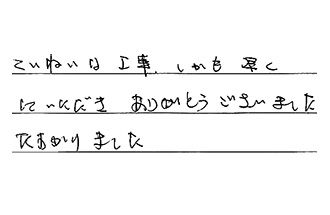 ていねいな工事、しかも早く
していただき ありがとうございました
たすかりました